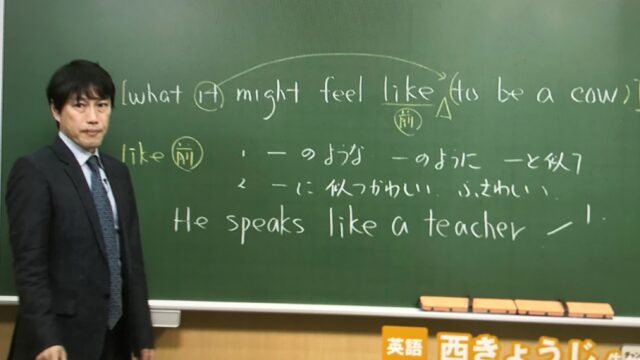 [what it might feel like (to be a cow)]
前
like 前 1 ―のような ―のように ―と似て
2 ―に似つかわしい ふさわしい
He speaks like a teacher / 1.
英語 西きょうじ